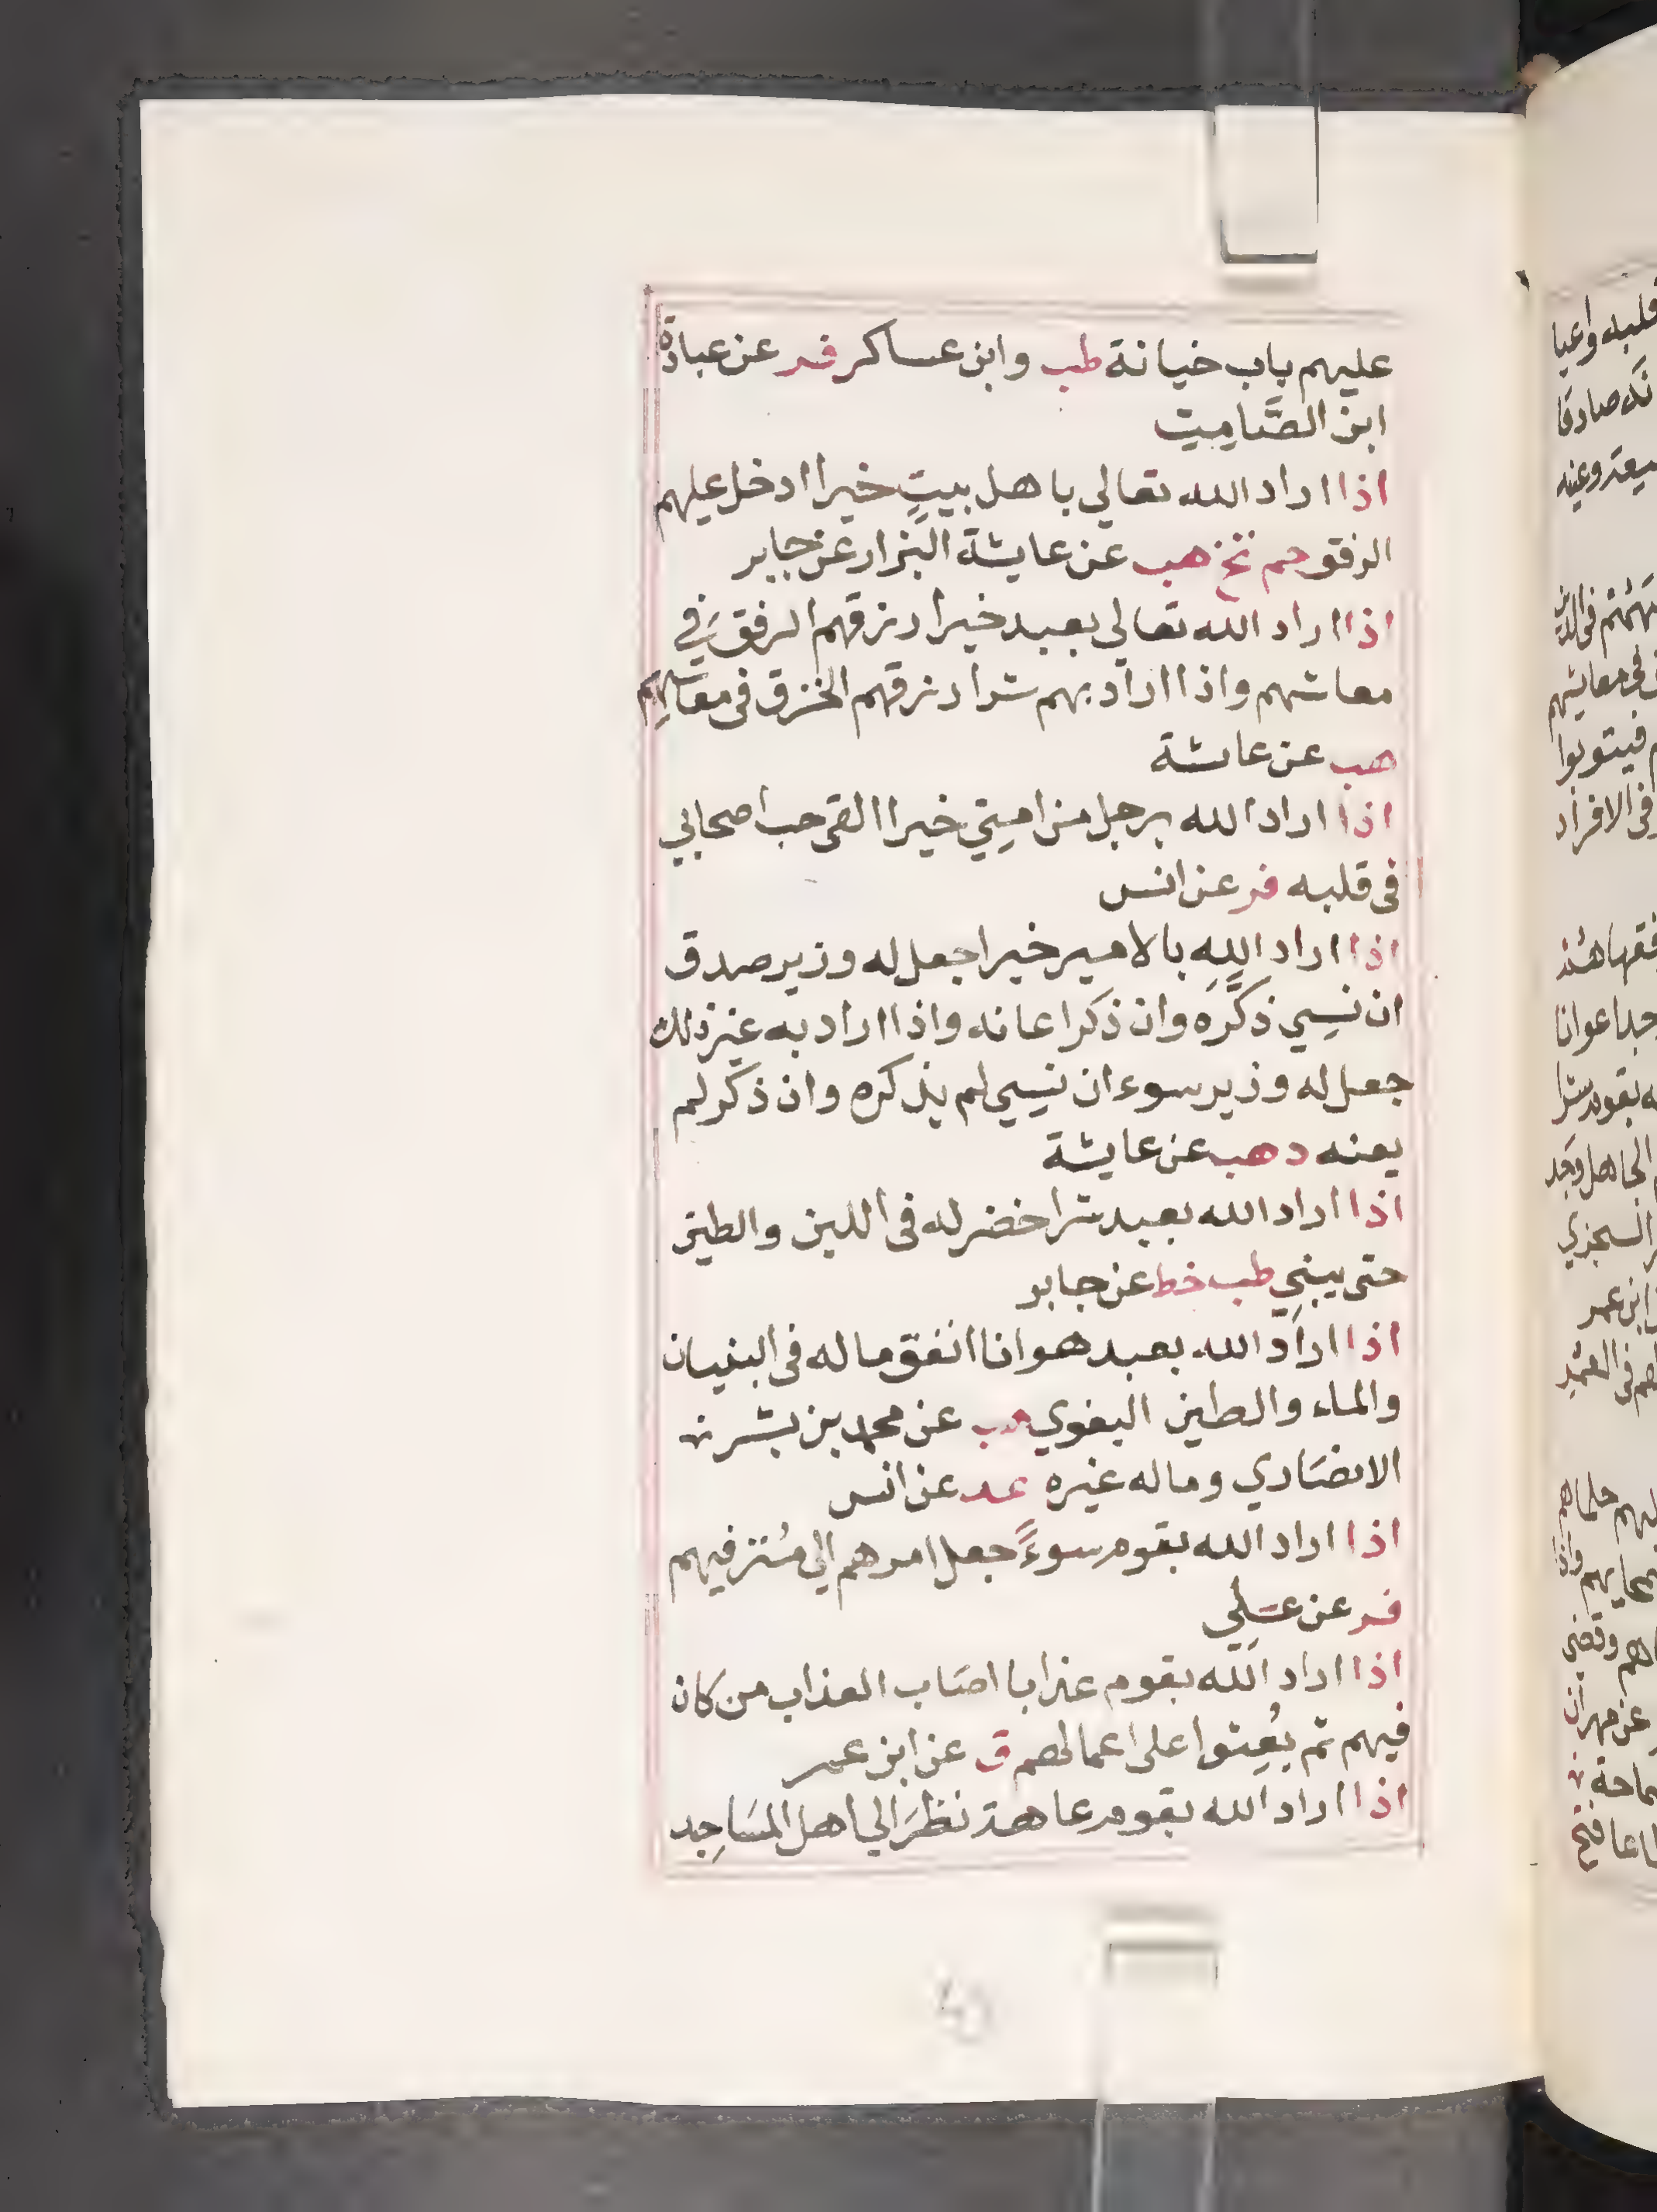 عليهم باب خيانة طب وابن عساكر فر عن عبادة
ابن الصَّامِت
اذا اراد الله تعالي باهل بيتٍ خيرا ادخل عليهم
الرفق حم تخ هب عن عايشة البزار عن جابر
اذا اراد الله تعالي بعبد خيرا رزقهم الرفق في
معاشهم واذا اراد بهم شرا رزقهم الخرق في معاشهم
هب عن عائشة
اذا اراد الله برجل من امتي خيرا القي حب اصحابي
في قلبه فر عن انس
اذا اراد الله بالامير خيرا جعل له وزير صدق
ان نسي ذكَّرَه وان ذكرا عانه واذا اراد به غير ذلك
جعل له وزير سوء ان نسي لم يذكره وان ذكر لم
يعنه د هب عن عايشة
اذا اراد الله بعبد شرا خضر له في اللبن والطين
حتى يبني طب خط عن جابر
اذا اراد الله بعبد هوانا انفق ماله في البنيان
والماء والطين البغوي هب عن محمد بن بشر
الانصَاري وماله غيره عد عن انس
اذا اراد الله بقوم سوءً جعل امرهم الي مُترفيهم
فر عن عَلِي
اذا اراد الله بقوم عذابا اصَاب العذاب من كان
فيهم ثم بُعِثوا على اعمالهم ق عن ابن عمر
اذا اراد الله بقوم عاهة نظرَ الي اهل المسَاجِد
قلبه واعيا
صادقا
في معايشهم
فيتوبوا
في الافراد
السجزي
ابن عمر
حلماهم
عن مهران